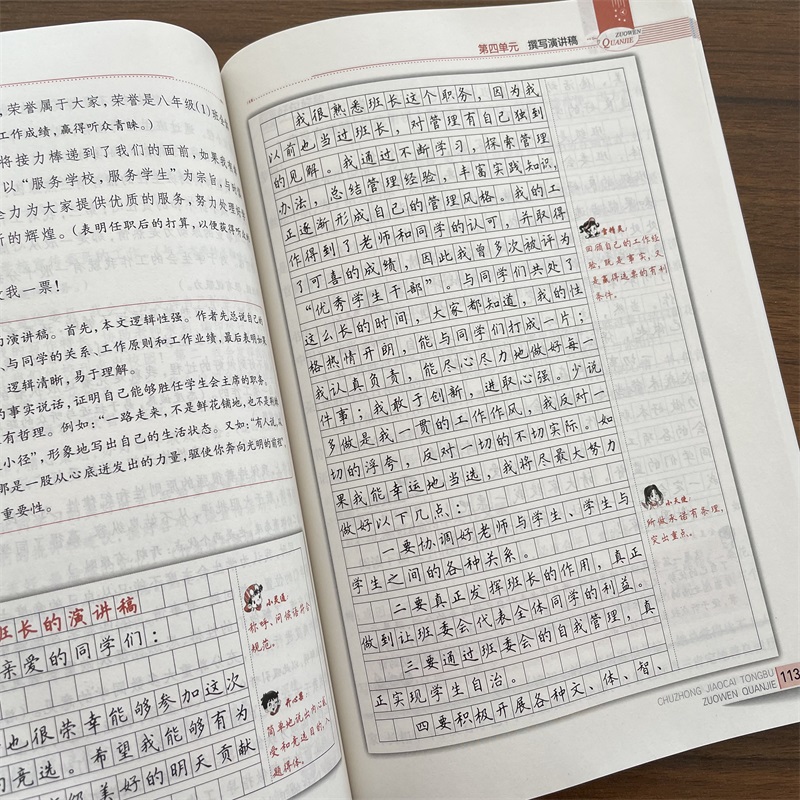 ，荣誉属于大家，荣誉是八年级(1)班
工作成绩，赢得听众青睐。)
将接力棒递到了我们的面前，如果我
以“服务学校，服务学生”为宗旨，与
全力为大家提供优质的服务，努力
新的辉煌。(表明任职后的打算，以便获得
我一票！
演讲稿。首先，本文逻辑性强。作者先总说自己
、与同学的关系、工作原则和工作业绩，最后表明
逻辑清晰，易于理解。
的事实说话，证明自己能够胜任学生会主席的职务。
有哲理。例如：“一路走来，不是鲜花铺地，也不是
小径”，形象地写出自己的生活状态。又如：“有人说，
那是一股从心底迸发出的力量，驱使你奔向光明的前程”，
重要性。
班长的演讲稿
亲爱的同学们：
也很荣幸能够参加这次
的竞选。希望我能够有为
美好的明天贡献
小灵通：
称呼、问候语符合
规范。
开心果：
简单地说出
爱和竞选目的，入
题得体。
第四单元 撰写演讲稿
ZUOWEN
QUANJIE
我很熟悉班长这个职务，因为我
以前也当过班长，对管理有自己独到
的见解。我通过不断学习，探索管理
办法，总结管理经验，丰富实践知识，
正逐渐形成自己的管理风格。我的工
作得到了老师和同学的认可，并取得
了可喜的成绩，因此我曾多次被评为
“优秀学生干部”。与同学们共处了
这么长的时间，大家都知道，我的性
格热情开朗，能与同学们打成一片；
我认真负责，能尽心尽力地做好每一
件事；我敢于创新，进取心强。少说
多做是我一贯的工作作风，我反对一
切的浮夸，反对一切的不切实际。如
果我能幸运地当选，我将尽最大努力
做好以下几点：
一要协调好老师与学生、学生与
学生之间的各种关系。
二要真正发挥班长的作用，真正
做到让班委会代表全体同学的利益。
三要通过班委会的自我管理，真
正实现学生自治。
四要积极开展各种文、体、智、
雪精灵：
回顾自己的工作经
验，既是事实，又
是赢得选票的有利
条件。
小天使：
所做承诺有条理，
突出重点。
CHUZHONG JIAOCAI TONGBU
ZUOWEN QUANJIE
113